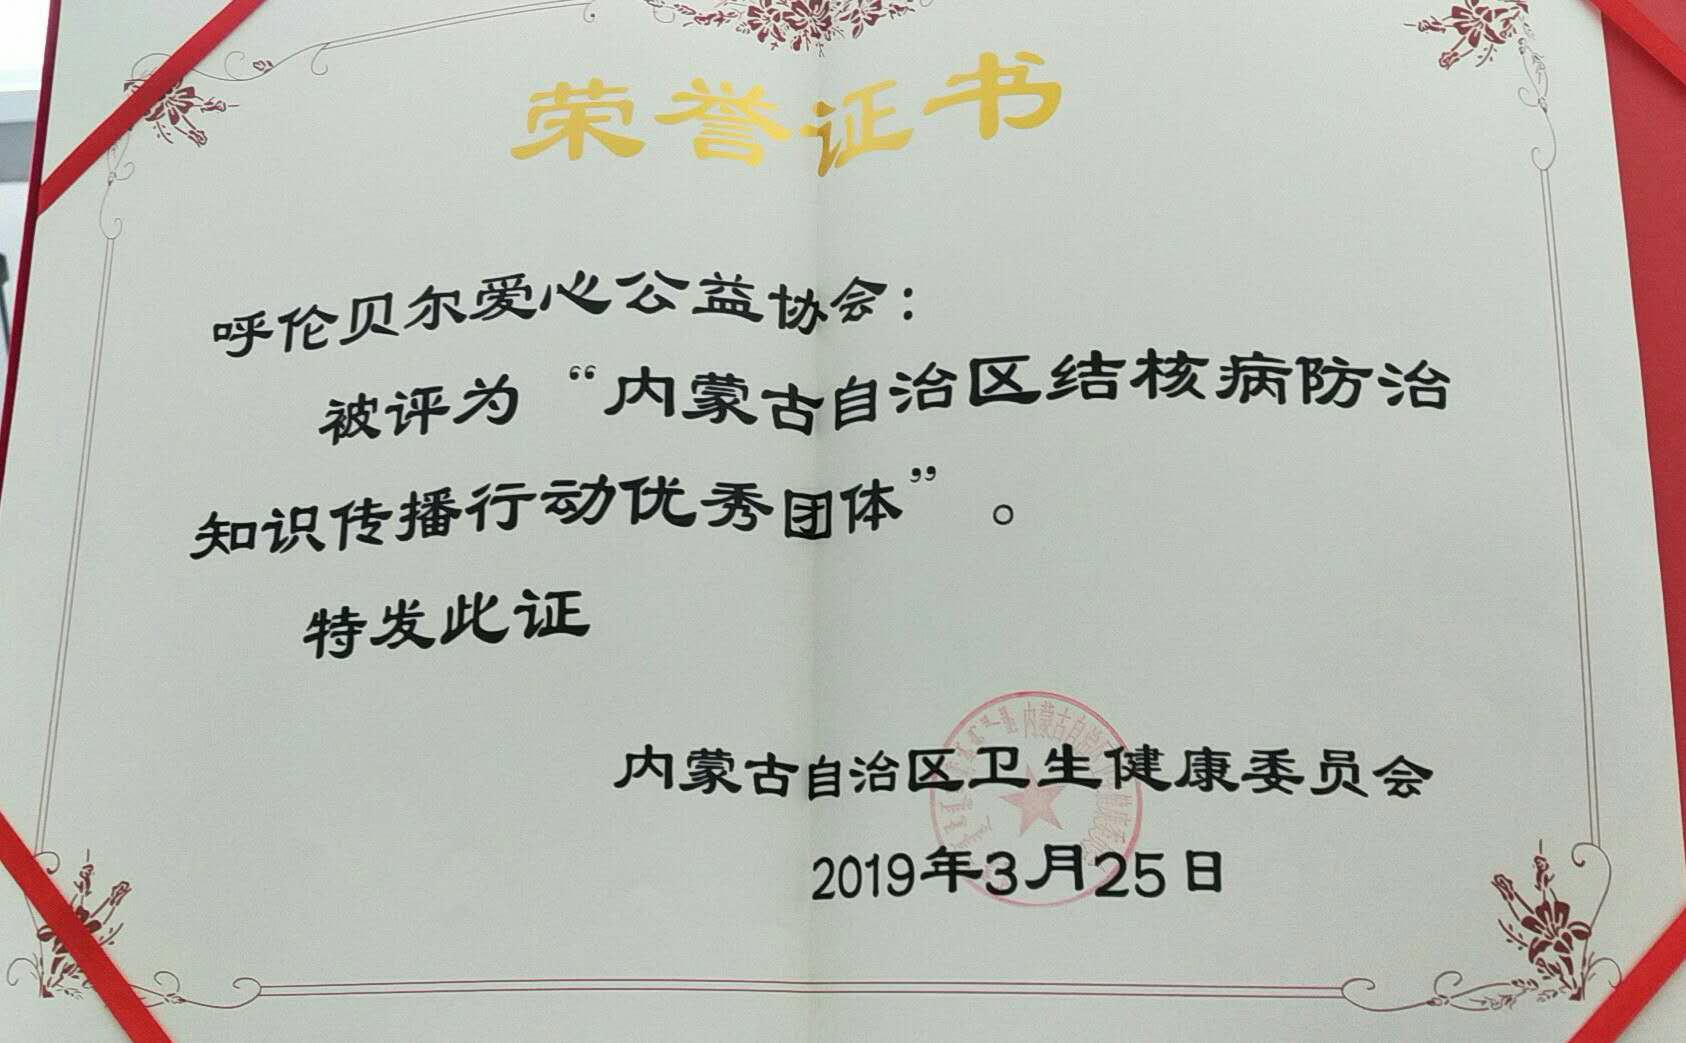 荣誉证书
呼伦贝尔爱心公益协会：
被评为“内蒙古自治区结核病防治
知识传播行动优秀团体”。
特发此证
内蒙古自治区卫生健康委员会
2019年3月25日
内蒙古自治区